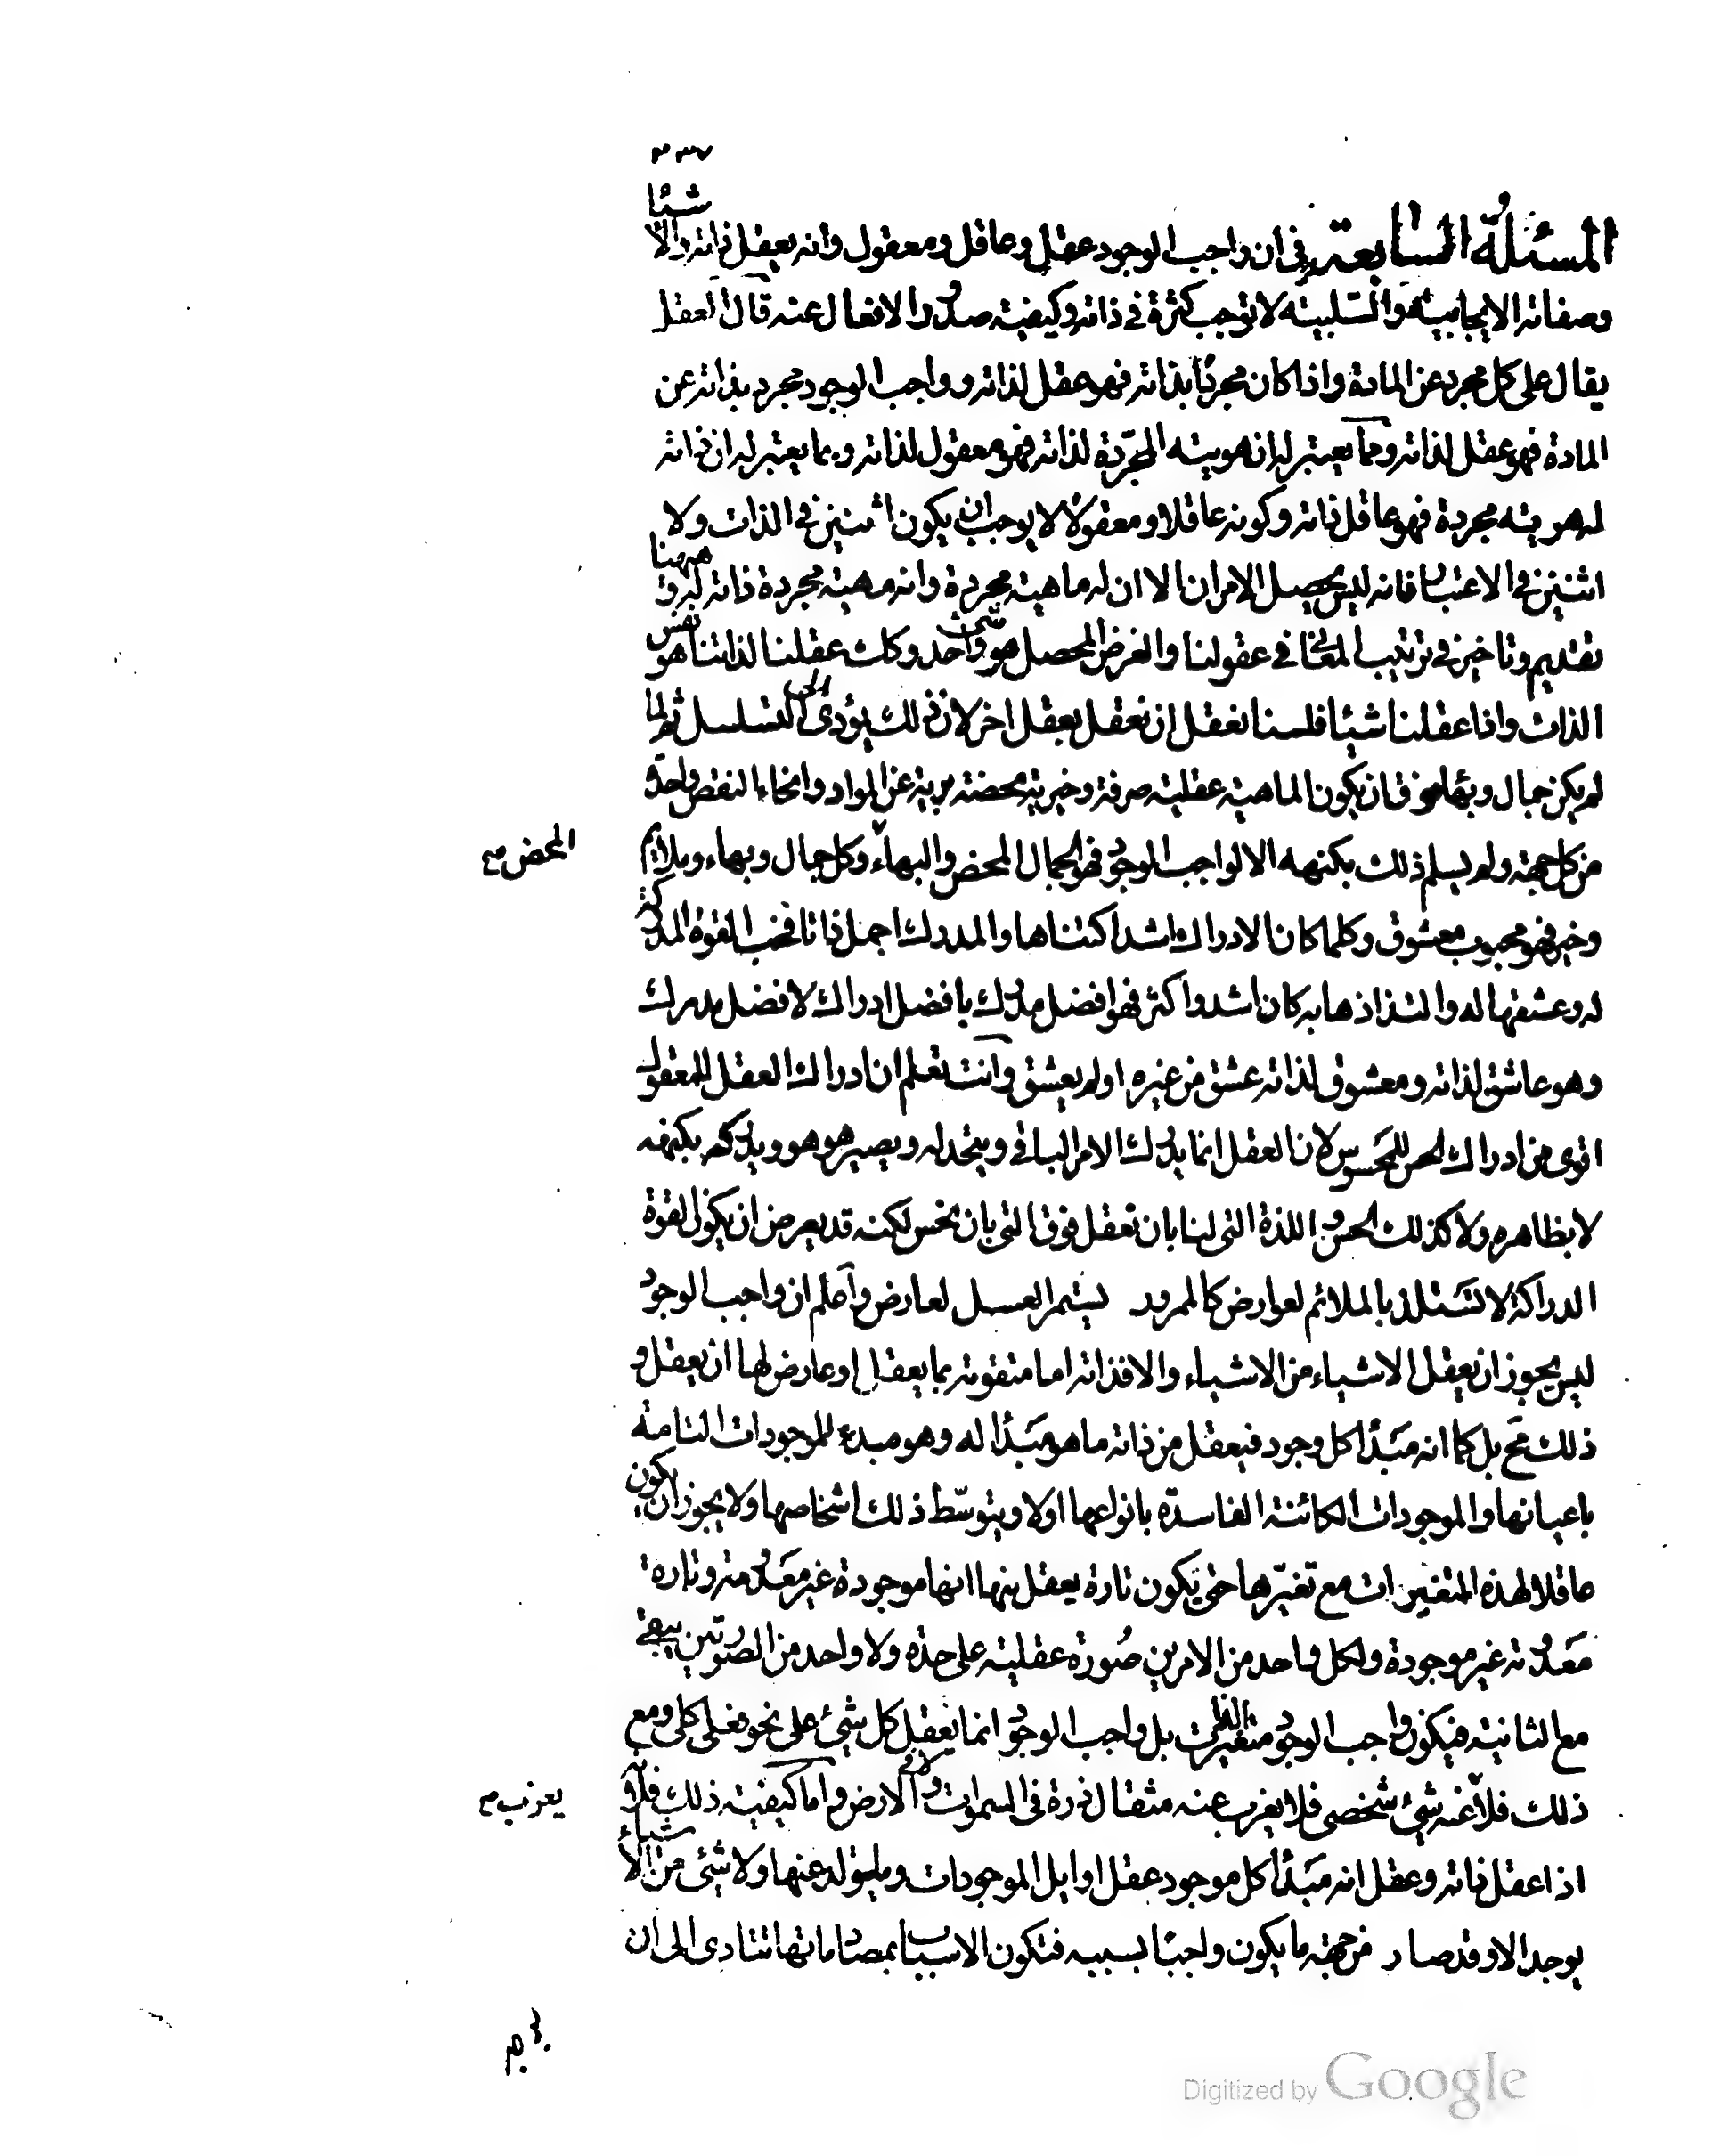 ٣٣٧
المسئلة السابعة في ان واجب الوجود عقل وعاقل ومعقول وانه يعقل ذاته والاشياء
وصفاته الايجابية والسلبية لا توجب كثرة في ذاته وكيفية صدور الافعال عنه قال العقل
يقال على كل مجرد عن المادة واذا كان مجردا بذاته فهو عقل لذاته وواجب الوجود مجرد بذاته عن
المادة فهو عقل لذاته وبما يعتبر له ان هويته المجردة لذاته فهو معقول لذاته وبما يعتبر له ان ذاته
له هوية مجردة فهو عاقل ذاته وكونه عاقلا ومعقولا لا يوجب ان يكون اثنين في الذات ولا
اثنين في الاعتبار فانه ليس يحصل الامران الا ان له ماهية مجردة وانه مهية مجردة ذاته له وههنا
تقديم وتاخير في ترتيب المعاني في عقولنا والغرض المحصل هو شئ واحد وكك عقلنا لذاتنا هو نفس
الذات واذا عقلنا شيئا فلسنا نعقل ان نعقل بعقل اخر لان ذلك يؤدى الى التسلسل ثم لما
لم يكن جمال وبهاء فوق ان يكون الماهية عقلية صرفة وخيرية محضة برية عن المواد وانحاء النقص واحدة
من كل جهة ولم يسلم ذلك بكنهه الا لواجب الوجود فهو الجمال المحض والبهاء وكل جمال وبهاء وملائم
المحض صح
وخير فهو محبوب معشوق وكلما كان الادراك اشد اكتناها والمدرك اجمل ذاتا فحب القوة المدركة
له وعشقها له والتذاذها به كان اشد واكثر فهو افضل مدرك بافضل ادراك لافضل مدرك
وهو عاشق لذاته ومعشوق لذاته عشق من غيره او لم يعشق وانت تعلم ان ادراك العقل للمعقول
اقوى من ادراك الحس للمحسوس لان العقل انما يدرك الامر الباقي ويتحد له ويصير هو هو ويدركه بكنهه
لا بظاهره ولا كذلك الحس واللذة التى لنا بان نعقل فوق التى بان نحس لكنه قد يعرض ان يكون القوة
الدراكة لا تستلذ بالملائم لعوارض كالممرور يستمر العسل لعارض واعلم ان واجب الوجود
ليس يجوز ان يعقل الاشياء من الاشياء والا فذاته اما متقومة بما يعقل او عارض لها ان يعقل و
ذلك مح بل كما انه مبدا كل وجود فيعقل من ذاته ما هو مبدا له وهو مبدء للموجودات التامة
باعيانها والموجودات الكائنة الفاسدة بانواعها اولا وبتوسط ذلك اشخاصها ولا يجوز ان يكون
عاقلا لهذه المتغيرات مع تغيرها حتى يكون تارة يعقل منها انها موجودة غير معدومة وتارة
معدومة غير موجودة ولكل واحد من الامرين صورة عقلية على حدة ولا واحد من الصورتين يبقى
مع الثانية فيكون واجب الوجود متغير الذات بل واجب الوجود انما يعقل كل شيئ على نحو فعلى كلى ومع
ذلك فلا عنه شيئ شخصى فلا يعزب عنه مثقال ذرة في السموات ولا في الارض واما كيفية ذلك فلانه
يعزب صح
اذا عقل ذاته وعقل انه مبدا كل موجود عقل اوايل الموجودات وما يتولد عنها ولا شيئ من الاشياء
يوجد الا وقد صار من جهة ما يكون واجبا بسببه فتكون الاسباب بمصادماتها تتادى الى ان
Digitized by Google